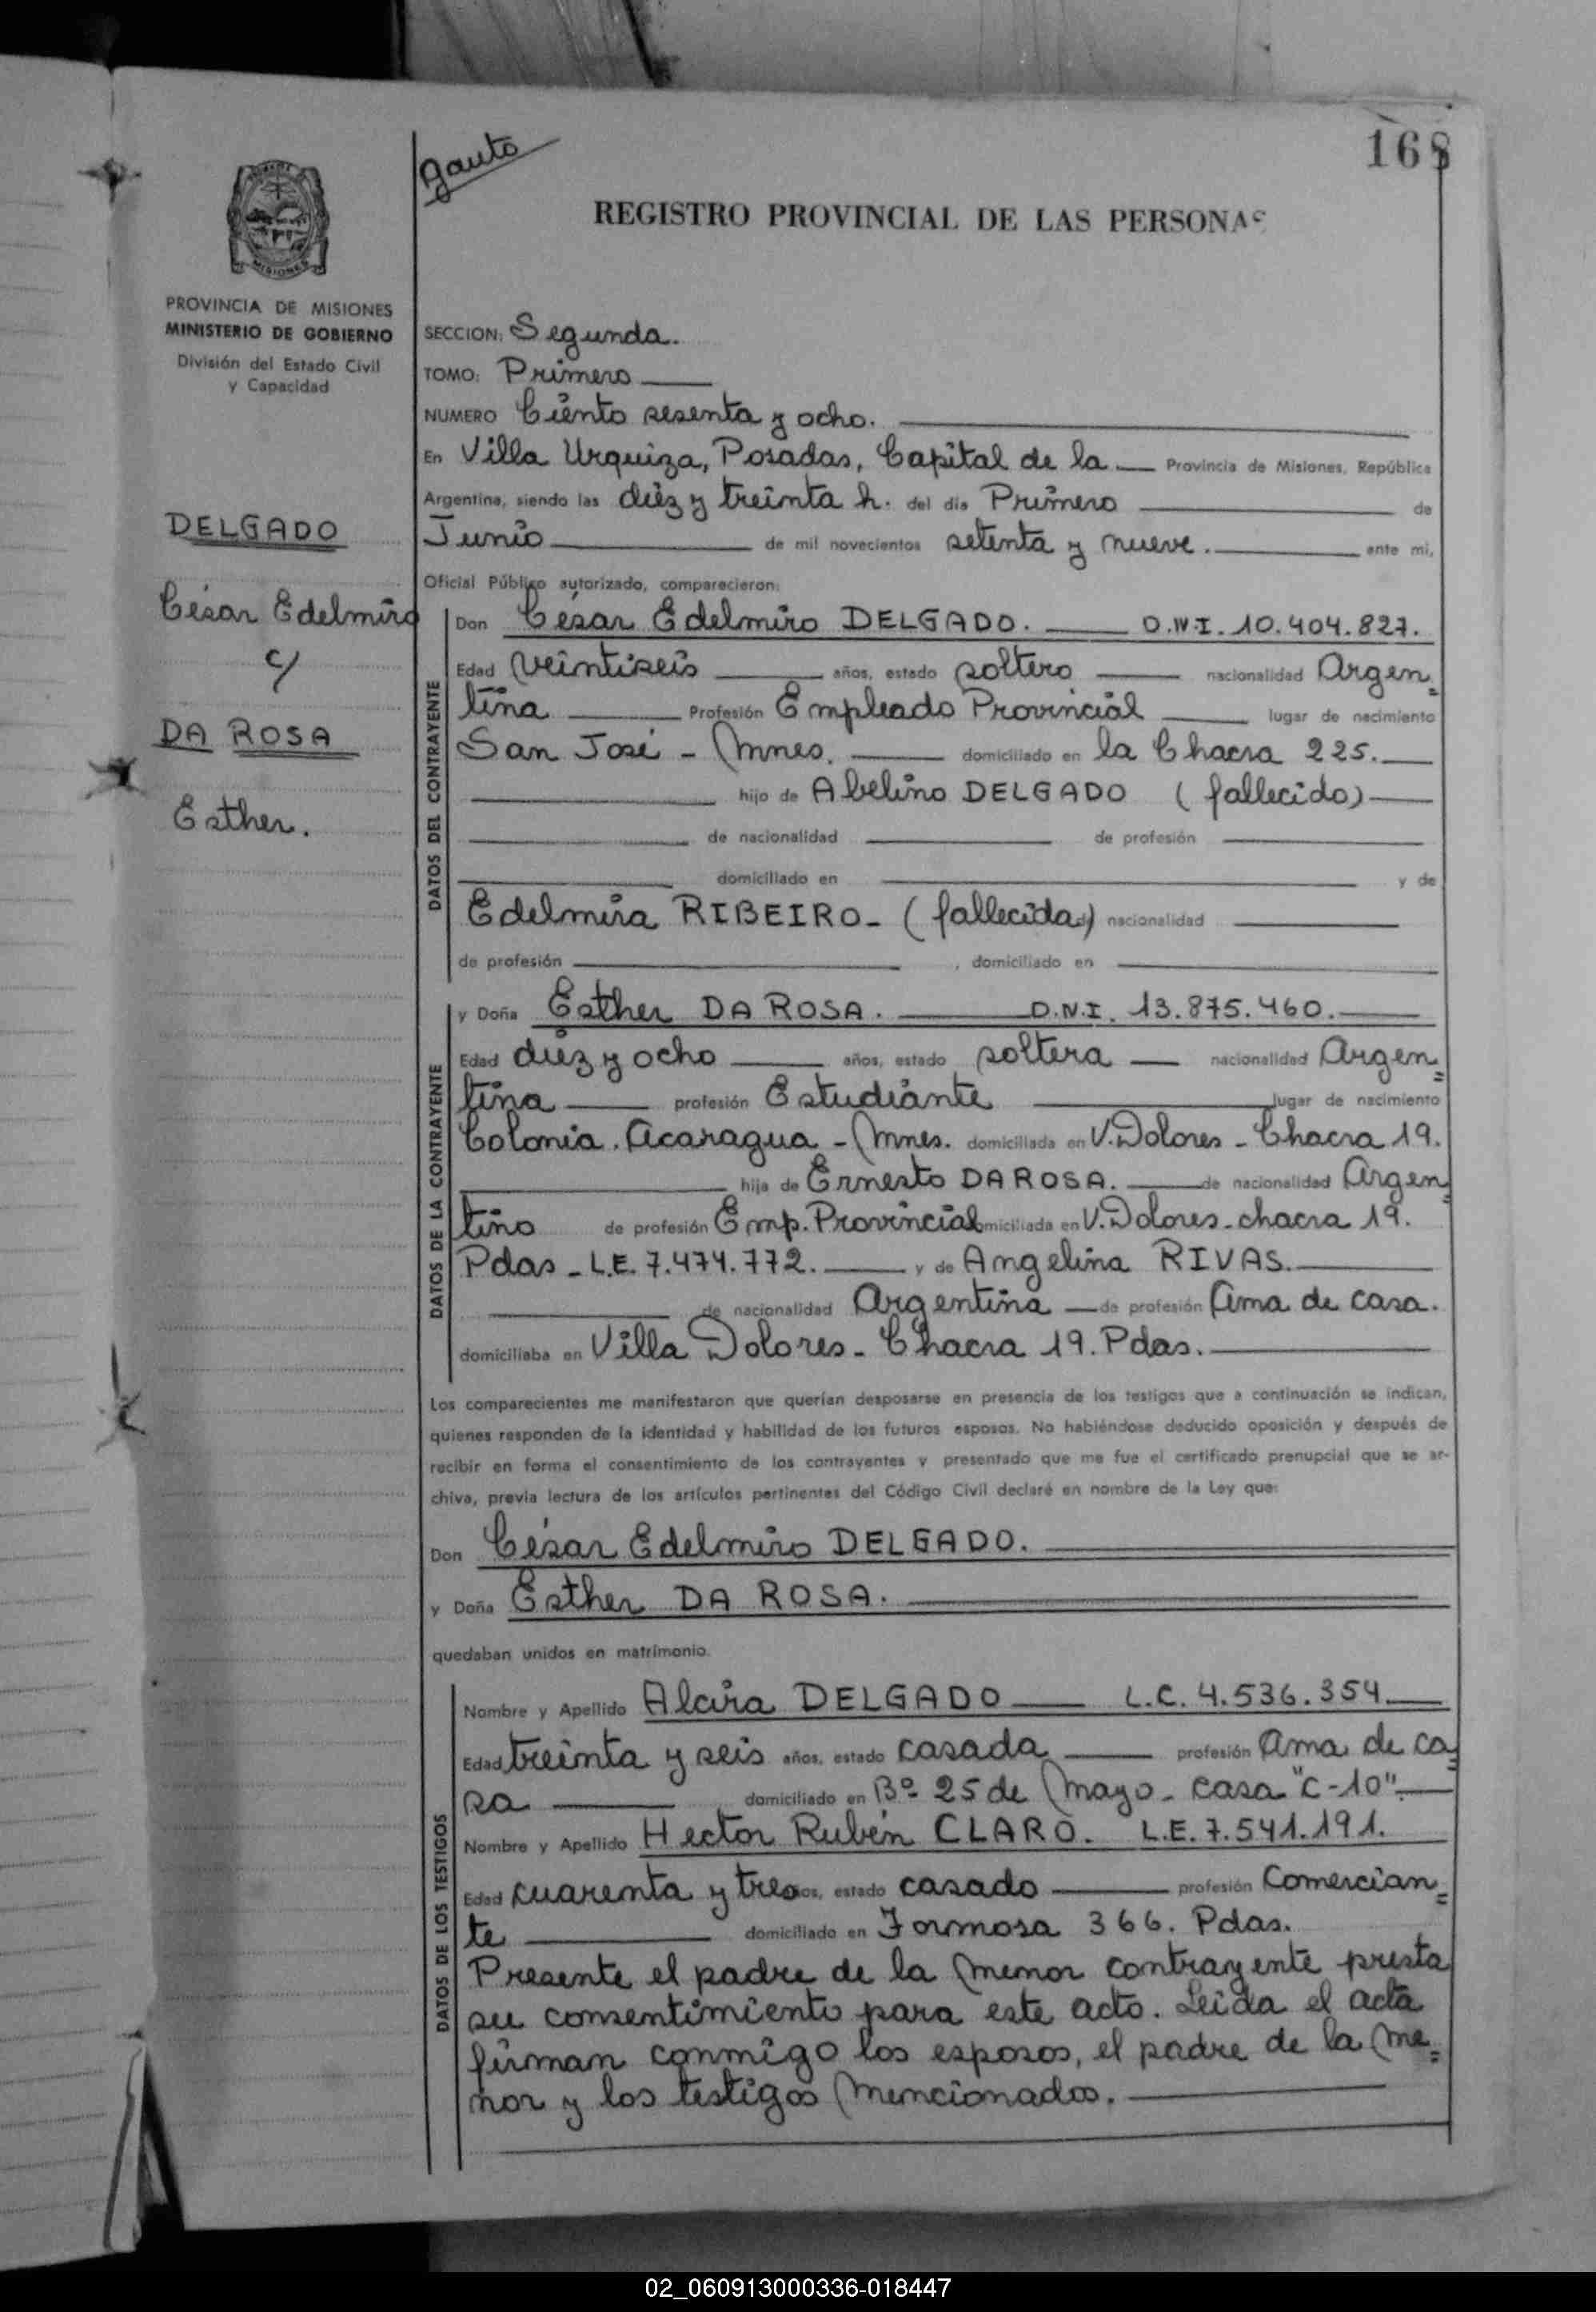 168
gauto
REGISTRO PROVINCIAL DE LAS PERSONAS
MISIONES
PROVINCIA DE MISIONES
MINISTERIO DE GOBIERNO
División del Estado Civil
y Capacidad
DELGADO
César Edelmiro
c/
DA ROSA
Esther.
SECCION: Segunda.
TOMO: Primero
NUMERO Ciento sesenta y ocho.
En Villa Urquiza, Posadas, Capital de la Provincia de Misiones, República
Argentina, siendo las diéz y treinta h. del día Primero de
Junio de mil novecientos setenta y nueve. ante mi,
Oficial Público autorizado, comparecieron:
DATOS DEL CONTRAYENTE
Don César Edelmiro DELGADO. D.N.I. 10.404.827.
Edad veintiseis años, estado soltero nacionalidad Argen=
tina Profesión Empleado Provincial lugar de nacimiento
San José - Mnes. domiciliado en la Chacra 225.
hijo de Abelino DELGADO (fallecido)
de nacionalidad de profesión
domiciliado en y de
Edelmira RIBEIRO- (fallecida) nacionalidad
de profesión , domiciliado en
DATOS DE LA CONTRAYENTE
y Doña Esther DA ROSA. D.N.I. 13.875.460.
Edad diez y ocho años, estado soltera nacionalidad Argen=
tina profesión Estudiante lugar de nacimiento
Colonia. Acaragua - Mnes. domiciliada en V. Dolores - Chacra 19.
hija de Ernesto DA ROSA. de nacionalidad Argen
tino de profesión Emp. Provincial domiciliada en V. Dolores - chacra 19.
Pdas - L.E. 7.474.772. y de Angelina RIVAS.
de nacionalidad Argentina de profesión Ama de casa.
domiciliaba en Villa Dolores - Chacra 19. Pdas.
Los comparecientes me manifestaron que querían desposarse en presencia de los testigos que a continuación se indican,
quienes responden de la identidad y habilidad de los futuros esposos. No habiéndose deducido oposición y después de
recibir en forma el consentimiento de los contrayentes y presentado que me fue el certificado prenupcial que se ar-
chiva, previa lectura de los artículos pertinentes del Código Civil declaré en nombre de la Ley que:
Don César Edelmiro DELGADO.
y Doña Esther DA ROSA.
quedaban unidos en matrimonio.
DATOS DE LOS TESTIGOS
Nombre y Apellido Alcira DELGADO L.C. 4.536.354
Edad treinta y seis años, estado casada profesión Ama de ca=
sa domiciliado en Bº 25 de Mayo - casa "C-10".
Nombre y Apellido Hector Rubén CLARO. L.E. 7.541.191.
Edad cuarenta y tres años, estado casado profesión Comercian=
te domiciliado en Formosa 366. Pdas.
Presente el padre de la menor contrayente presta
su consentimiento para este acto. Leida el acta
firman conmigo los esposos, el padre de la me=
nor y los testigos mencionados.
02_060913000336-018447